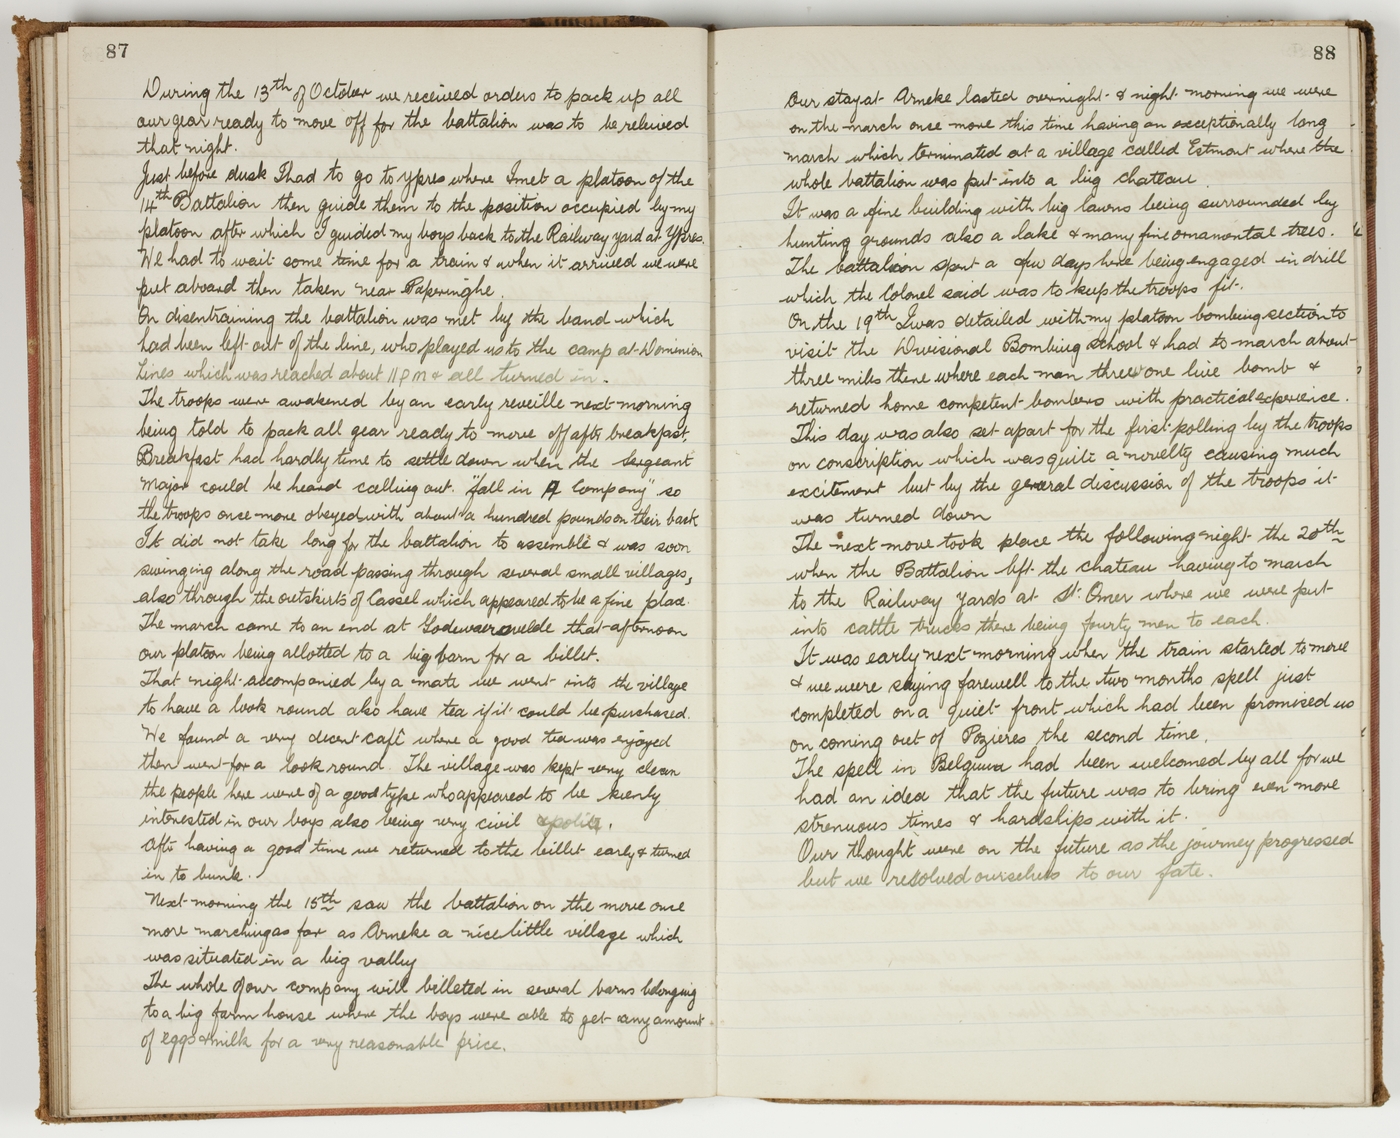 87
During the 13th of October we received orders to pack up all
our gear ready to move off for the battalion was to be relieved
that night.
Just before dusk I had to go to Ypres where I met a platoon of the
14th Battalion then guide them to the position occupied by my
platoon after which I guided my boys back to the Railway yard at Ypres.
We had to wait some time for a train & when it arrived we were
put aboard then taken near Paperinghe.
On disentraining the battalion was met by the band which
had been left out of the line, who played us to the camp at Dominion
Lines which was reached about 11 P.M & all turned in.
The troops were awakened by an early reveille next morning
being told to pack all gear ready to move off after breakfast.
Breakfast had hardly time to settle down when the Sergeant
Major could be heard calling out. "fall in A Company" so
the troops once more obeyed with about a hundred pounds on their back
It did not take long for the battalion to assemble & was soon
swinging along the road passing through several small villages,
also through the outskirts of Cassel which appeared to be a fine place.
The march came to an end at Godewaersvelde that afternoon
our platoon being allotted to a big barn for a billet.
That night accompanied by a mate we went into the village
to have a look round also have tea if it could be purchased.
We found a very decent café where a good tea was enjoyed
then went for a look round. The village was kept very clean
the people here were of a good type who appeared to be keenly
interested in our boys also being very civil & polite.
After having a good time we returned to the billet early & turned
in to bunk.
Next morning the 15th saw the battalion on the move once
more marching as far as Arneke a nice little village which
was situated in a big valley
The whole of our company will billeted in several barns belonging
to a big farm house where the boys were able to get any amount
of eggs & milk for a very reasonable price.
88
Our stay at Arneke lasted overnight & night morning we were
on the march once more this time having an exceptionally long
march which terminated at a village called Estmont where the
whole battalion was put into a big chateau.
It was a fine building with big lawns being surrounded by
hunting grounds also a lake & many fine ornamental trees.
The battalion spent a few days here being engaged in drill
which the Colonel said was to keep the troops fit.
On the 19th I was detailed with my platoon bombing section to
visit the Divisional Bombing School & had to march about
three miles there where each man threw one live bomb &
returned home competent bombers with practical experience.
This day was also set apart for the first polling by the troops
on conscription which was quite a novelty causing much
excitement but by the general discussion of the troops it
was turned down
The next move took place the following night the 20th
when the Battalion left the chateau having to march
to the Railway Yards at St. Omer where we were put
into cattle trucks there being fourty men to each.
It was early next morning when the train started to move
& we were saying farewell to the two months spell just
completed on a quiet front which had been promised us
on coming out of Pozieres the second time.
The spell in Belgium had been welcomed by all for we
had an idea that the future was to bring even more
strenuous times & hardships with it.
Our thought were on the future as the journey progressed
but we resolved ourselves to our fate.